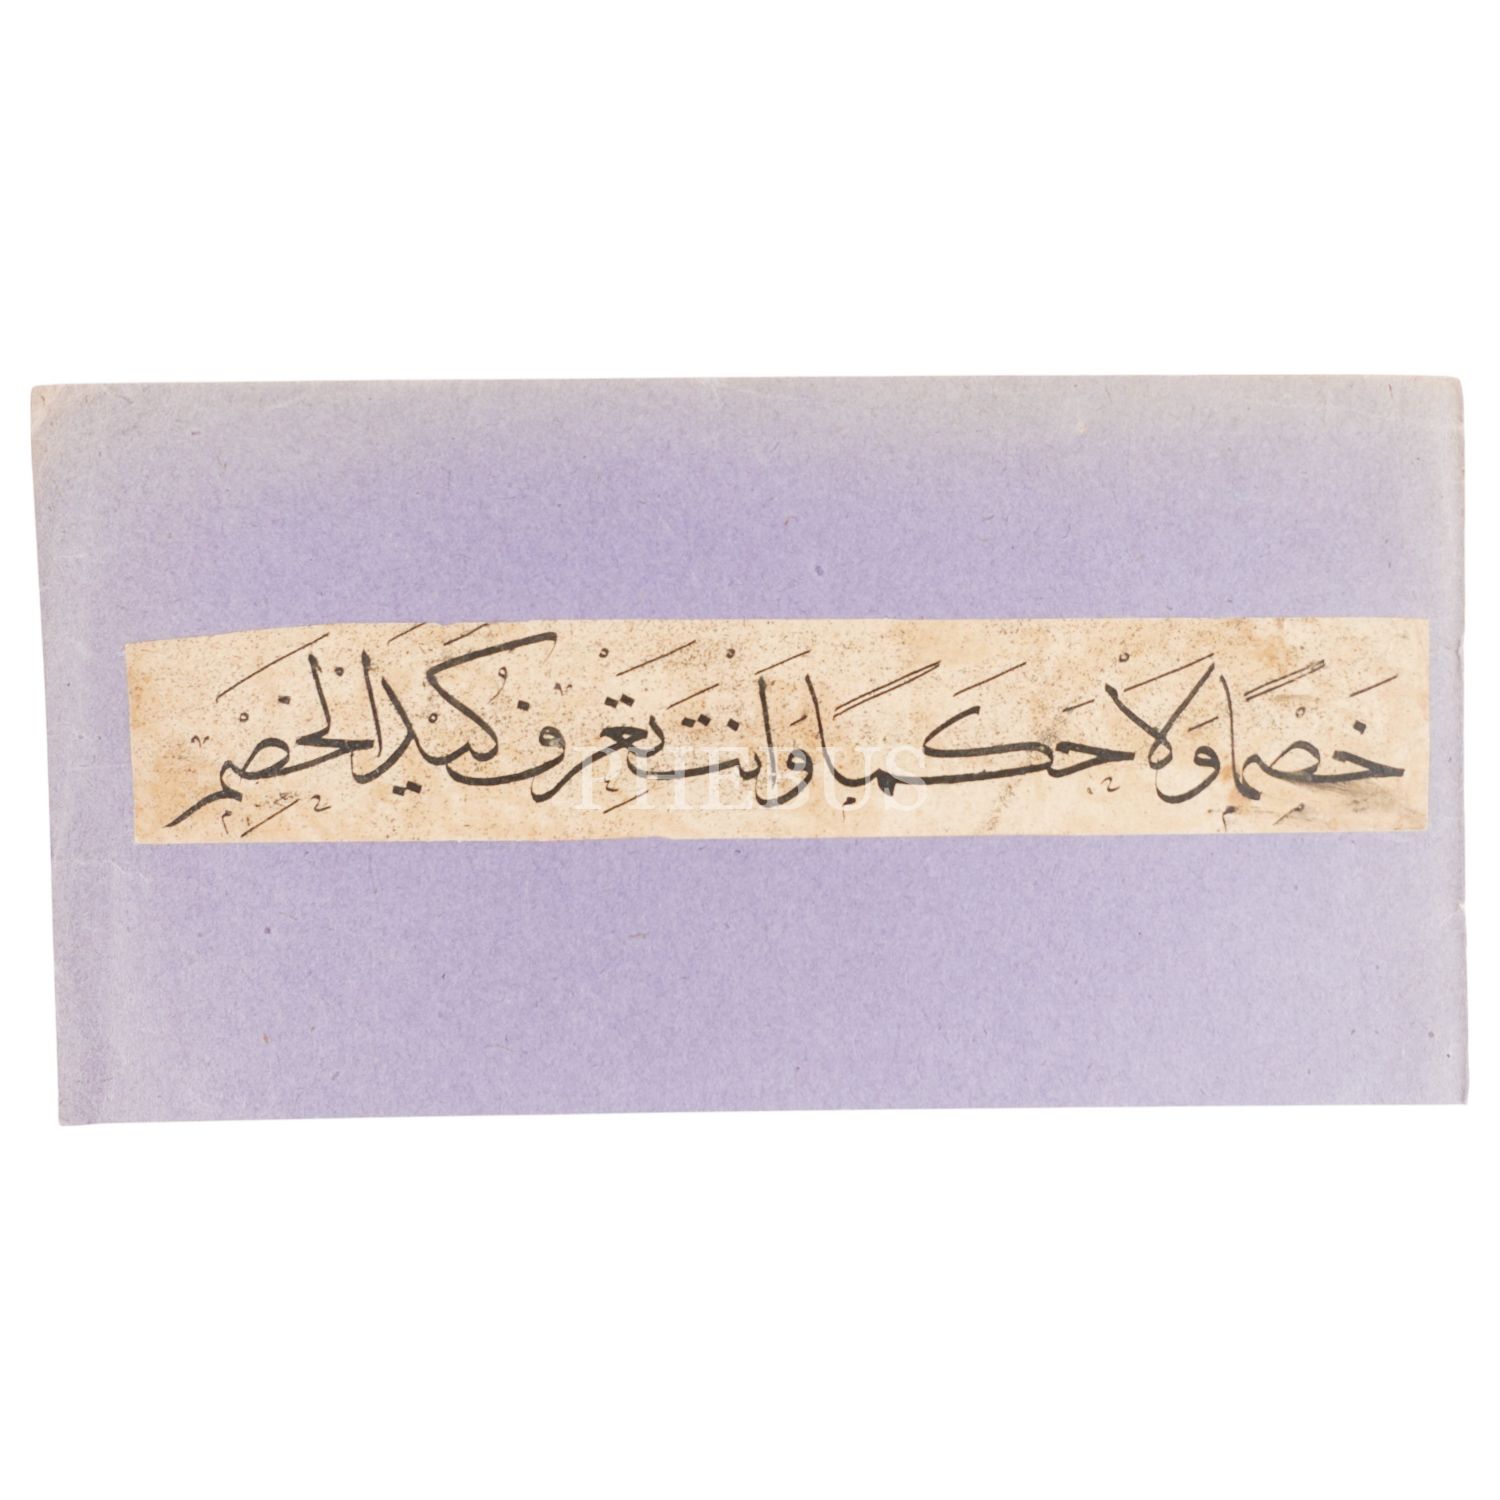 خَصْمًا وَلَا حَكَمًا وَاَنْتَ تَعْرِفُ كَيْدَ الْخَصْمِ
PHEBUS